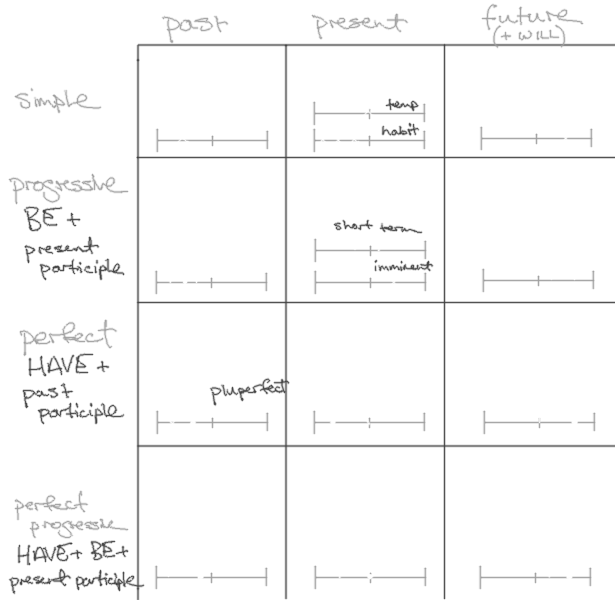 past present future
(+ WILL)
simple
temp
habit
progressive
BE +
present
participle
short term
imminent
perfect
HAVE +
past
participle
pluperfect
perfect
progressive
HAVE + BE +
present participle